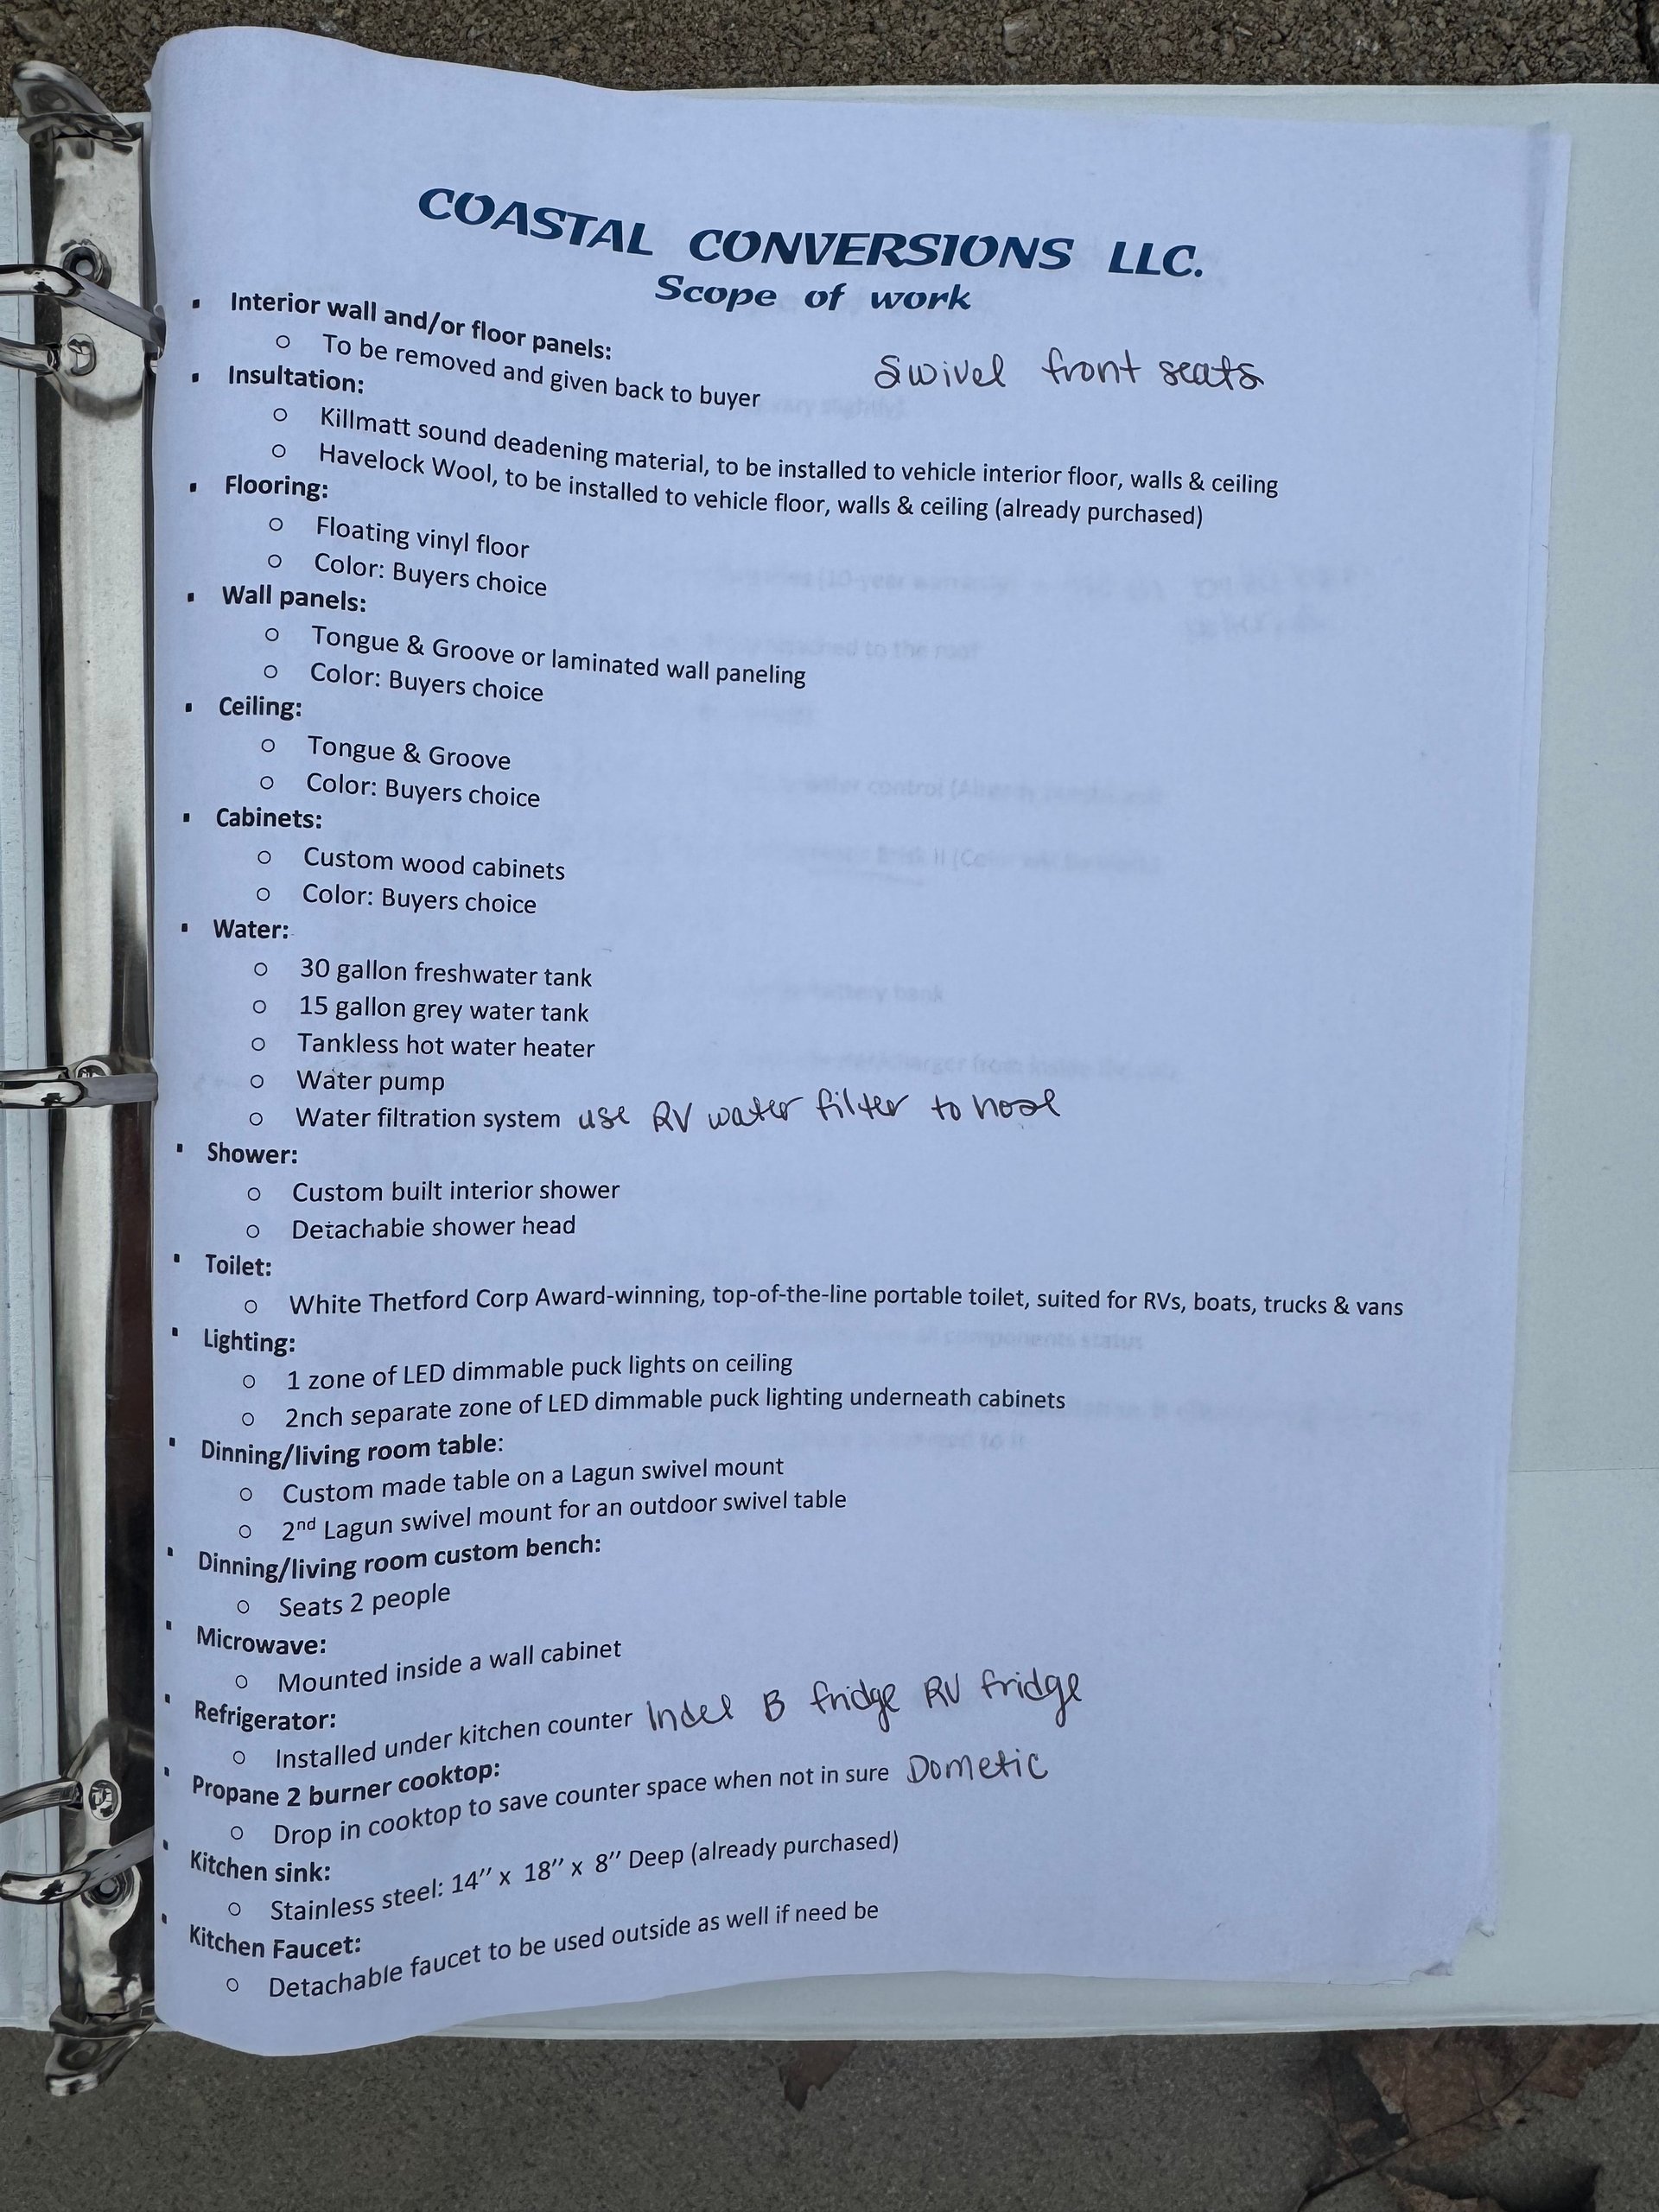 COASTAL CONVERSIONS LLC.
Scope of work
▪ Interior wall and/or floor panels:
o To be removed and given back to buyer
Swivel front seats
▪ Insultation:
o Killmatt sound deadening material, to be installed to vehicle interior floor, walls & ceiling
o Havelock Wool, to be installed to vehicle floor, walls & ceiling (already purchased)
▪ Flooring:
o Floating vinyl floor
o Color: Buyers choice
▪ Wall panels:
o Tongue & Groove or laminated wall paneling
o Color: Buyers choice
▪ Ceiling:
o Tongue & Groove
o Color: Buyers choice
▪ Cabinets:
o Custom wood cabinets
o Color: Buyers choice
▪ Water:
o 30 gallon freshwater tank
o 15 gallon grey water tank
o Tankless hot water heater
o Water pump
o Water filtration system use RV water filter to hose
▪ Shower:
o Custom built interior shower
o Detachable shower head
▪ Toilet:
o White Thetford Corp Award-winning, top-of-the-line portable toilet, suited for RVs, boats, trucks & vans
▪ Lighting:
o 1 zone of LED dimmable puck lights on ceiling
o 2nch separate zone of LED dimmable puck lighting underneath cabinets
▪ Dinning/living room table:
o Custom made table on a Lagun swivel mount
o 2nd Lagun swivel mount for an outdoor swivel table
▪ Dinning/living room custom bench:
o Seats 2 people
▪ Microwave:
o Mounted inside a wall cabinet
▪ Refrigerator:
o Installed under kitchen counter Indel B fridge RV fridge
▪ Propane 2 burner cooktop:
o Drop in cooktop to save counter space when not in sure Dometic
▪ Kitchen sink:
o Stainless steel: 14” x 18” x 8” Deep (already purchased)
▪ Kitchen Faucet:
o Detachable faucet to be used outside as well if need be